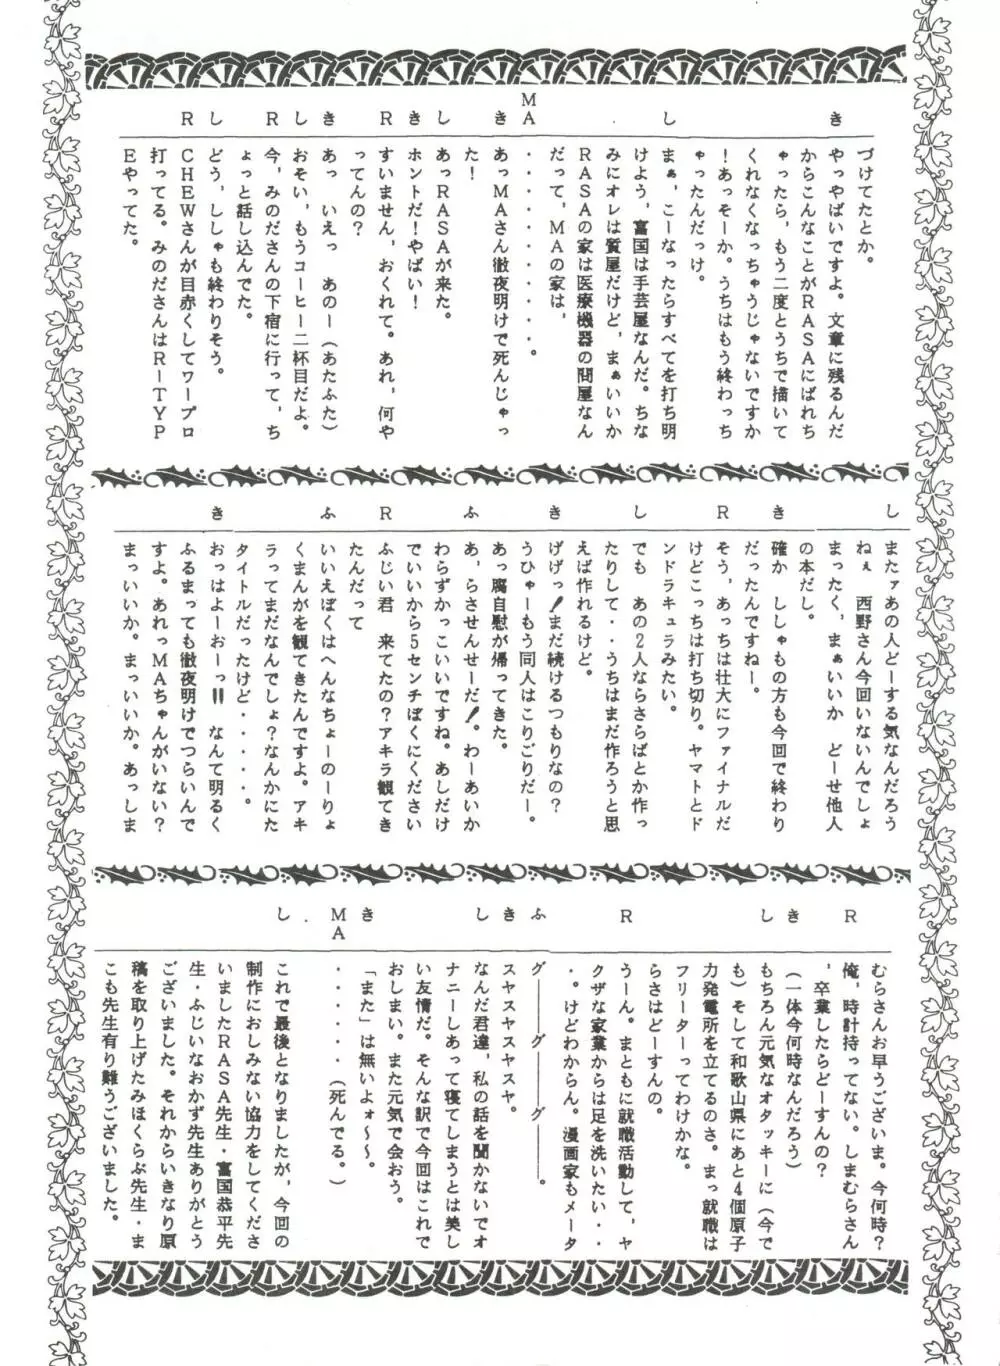 づけてたとか。
き
やっやばいですよ。文章に残るんだ
からこんなことがRASAにばれち
ゃったら、もう二度とうちで描いて
くれなくなっちゃうじゃないですか
！あっそーか。うちはもう終わっち
ゃったんだっけ。
し
まぁ，こーなったらすべてを打ち明
けよう、富国は手芸屋なんだ。ちな
みにオレは質屋だけど，まぁいいか
RASAの家は医療機器の問屋なん
だって、MAの家は、
MA
・・・・・・・・・。
き
あっMAさん徹夜明けで死んじゃっ
た！
し
あっRASAが来た。
き
ホントだ！やばい！
R
すいません，おくれて。あれ，何や
ってんの？
き
あっ　いえっ　あのー（あたふた）
し
おそい，もうコーヒー二杯目だよ。
R
今，みのださんの下宿に行って，ち
ょっと話し込んでた。
し
どう，ししゃも終わりそう。
R
CHEWさんが目赤くしてワープロ
打ってる。みのださんはR－TYP
Eやってた。
し
またァあの人どーする気なんだろう
ねぇ　西野さん今回いないんでしょ
まったく，まぁいいか　どーせ他人
の本だし。
き
確か　ししゃもの方も今回で終わり
だったんですねー。
R
そう，あっちは壮大にファイナルだ
けどこっちは打ち切り。ヤマトとド
ンドラキュラみたい。
し
でも　あの2人ならさらばとか作っ
たりして・・うちはまだ作ろうと思
えば作れるけど。
き
げげっ！まだ続けるつもりなの？
うひゅーもう同人はこりごりだー。
あっ腐自慰が帰ってきた。
ふ
あ，らさせんせーだ！。わーあいか
わらずかっこいいですね。あしだけ
でいいから5センチぼくにください
R
ふじい君　来てたの？アキラ観てき
たんだって
ふ
いいえぼくはへんなちょーのーりょ
くまんがを観てきたんですよ。アキ
ラってまだなんでしょ？なんかにた
タイトルだったけど・・・・。
き
おっはよーおーっ!!　なんて明るく
ふるまっても徹夜明けでつらいんで
すよ。あれっMAちゃんがいない？
まっいいか。まっいいか。あっしま
むらさんお早うございま。今何時？
R
俺，時計持ってない。しまむらさん
，卒業したらどーすんの？
き
（一体今何時なんだろう）
し
もちろん元気なオタッキーに（今で
も）そして和歌山県にあと4個原子
力発電所を立てるのさ。まっ就職は
フリーターってわけかな。
らさはどーすんの。
R
うーん。まともに就職活動して，ヤ
クザな家業からは足を洗いたい・・
・。けどわからん。漫画家もメータ
ふ
グ――グ――グ――。
き
スヤスヤスヤスヤ。
し
なんだ君達，私の話を聞かないでオ
ナニーしあって寝てしまうとは美し
い友情だ。そんな訳で今回はこれで
おしまい。また元気で会おう。
き
「また」は無いよォ～～。
MA
・・・・・・（死んでる。）
し
これで最後となりましたが，今回の
制作におしみない協力をしてくださ
いましたRASA先生・富国恭平先
生・ふじいなおかず先生ありがとう
ございました。それからいきなり原
稿を取り上げたみほくらぶ先生・ま
こも先生有り難うございました。